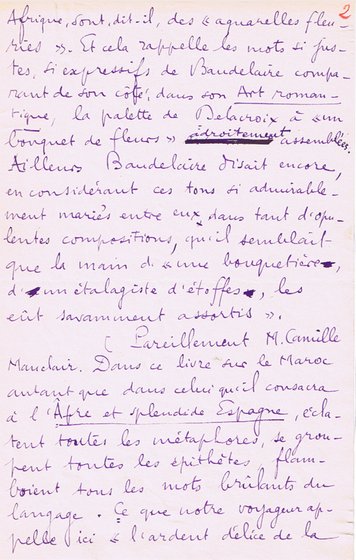 2
Afrique, sont, dit-il, des « aquarelles fleu-
ries ». Et cela rappelle les mots si jus-
tes, si expressifs de Baudelaire compa-
rant de son côté, dans son Art roman-
tique, la palette de Delacroix à « un
bouquet de fleurs » adroitement assemblées.
Ailleurs Baudelaire disait encore,
en considérant ces tons si admirable-
ment mariés entre eux dans tant d'opu-
lentes compositions, qu'il semblait
que la main d « une bouquetière,
d'un étalagiste d'étoffes, les
eût savamment assortis ».
( Pareillement M. Camille
Mauclair. Dans ce livre sur le Maroc
autant que dans celui qu'il consacra
à l'Âpre et splendide Espagne, écla-
tent toutes les métaphores, se grou-
pent toutes les épithètes, flam-
boient tous les mots brûlants du
langage. Ce que notre voyageur ap-
pelle ici « l'ardent délice de la